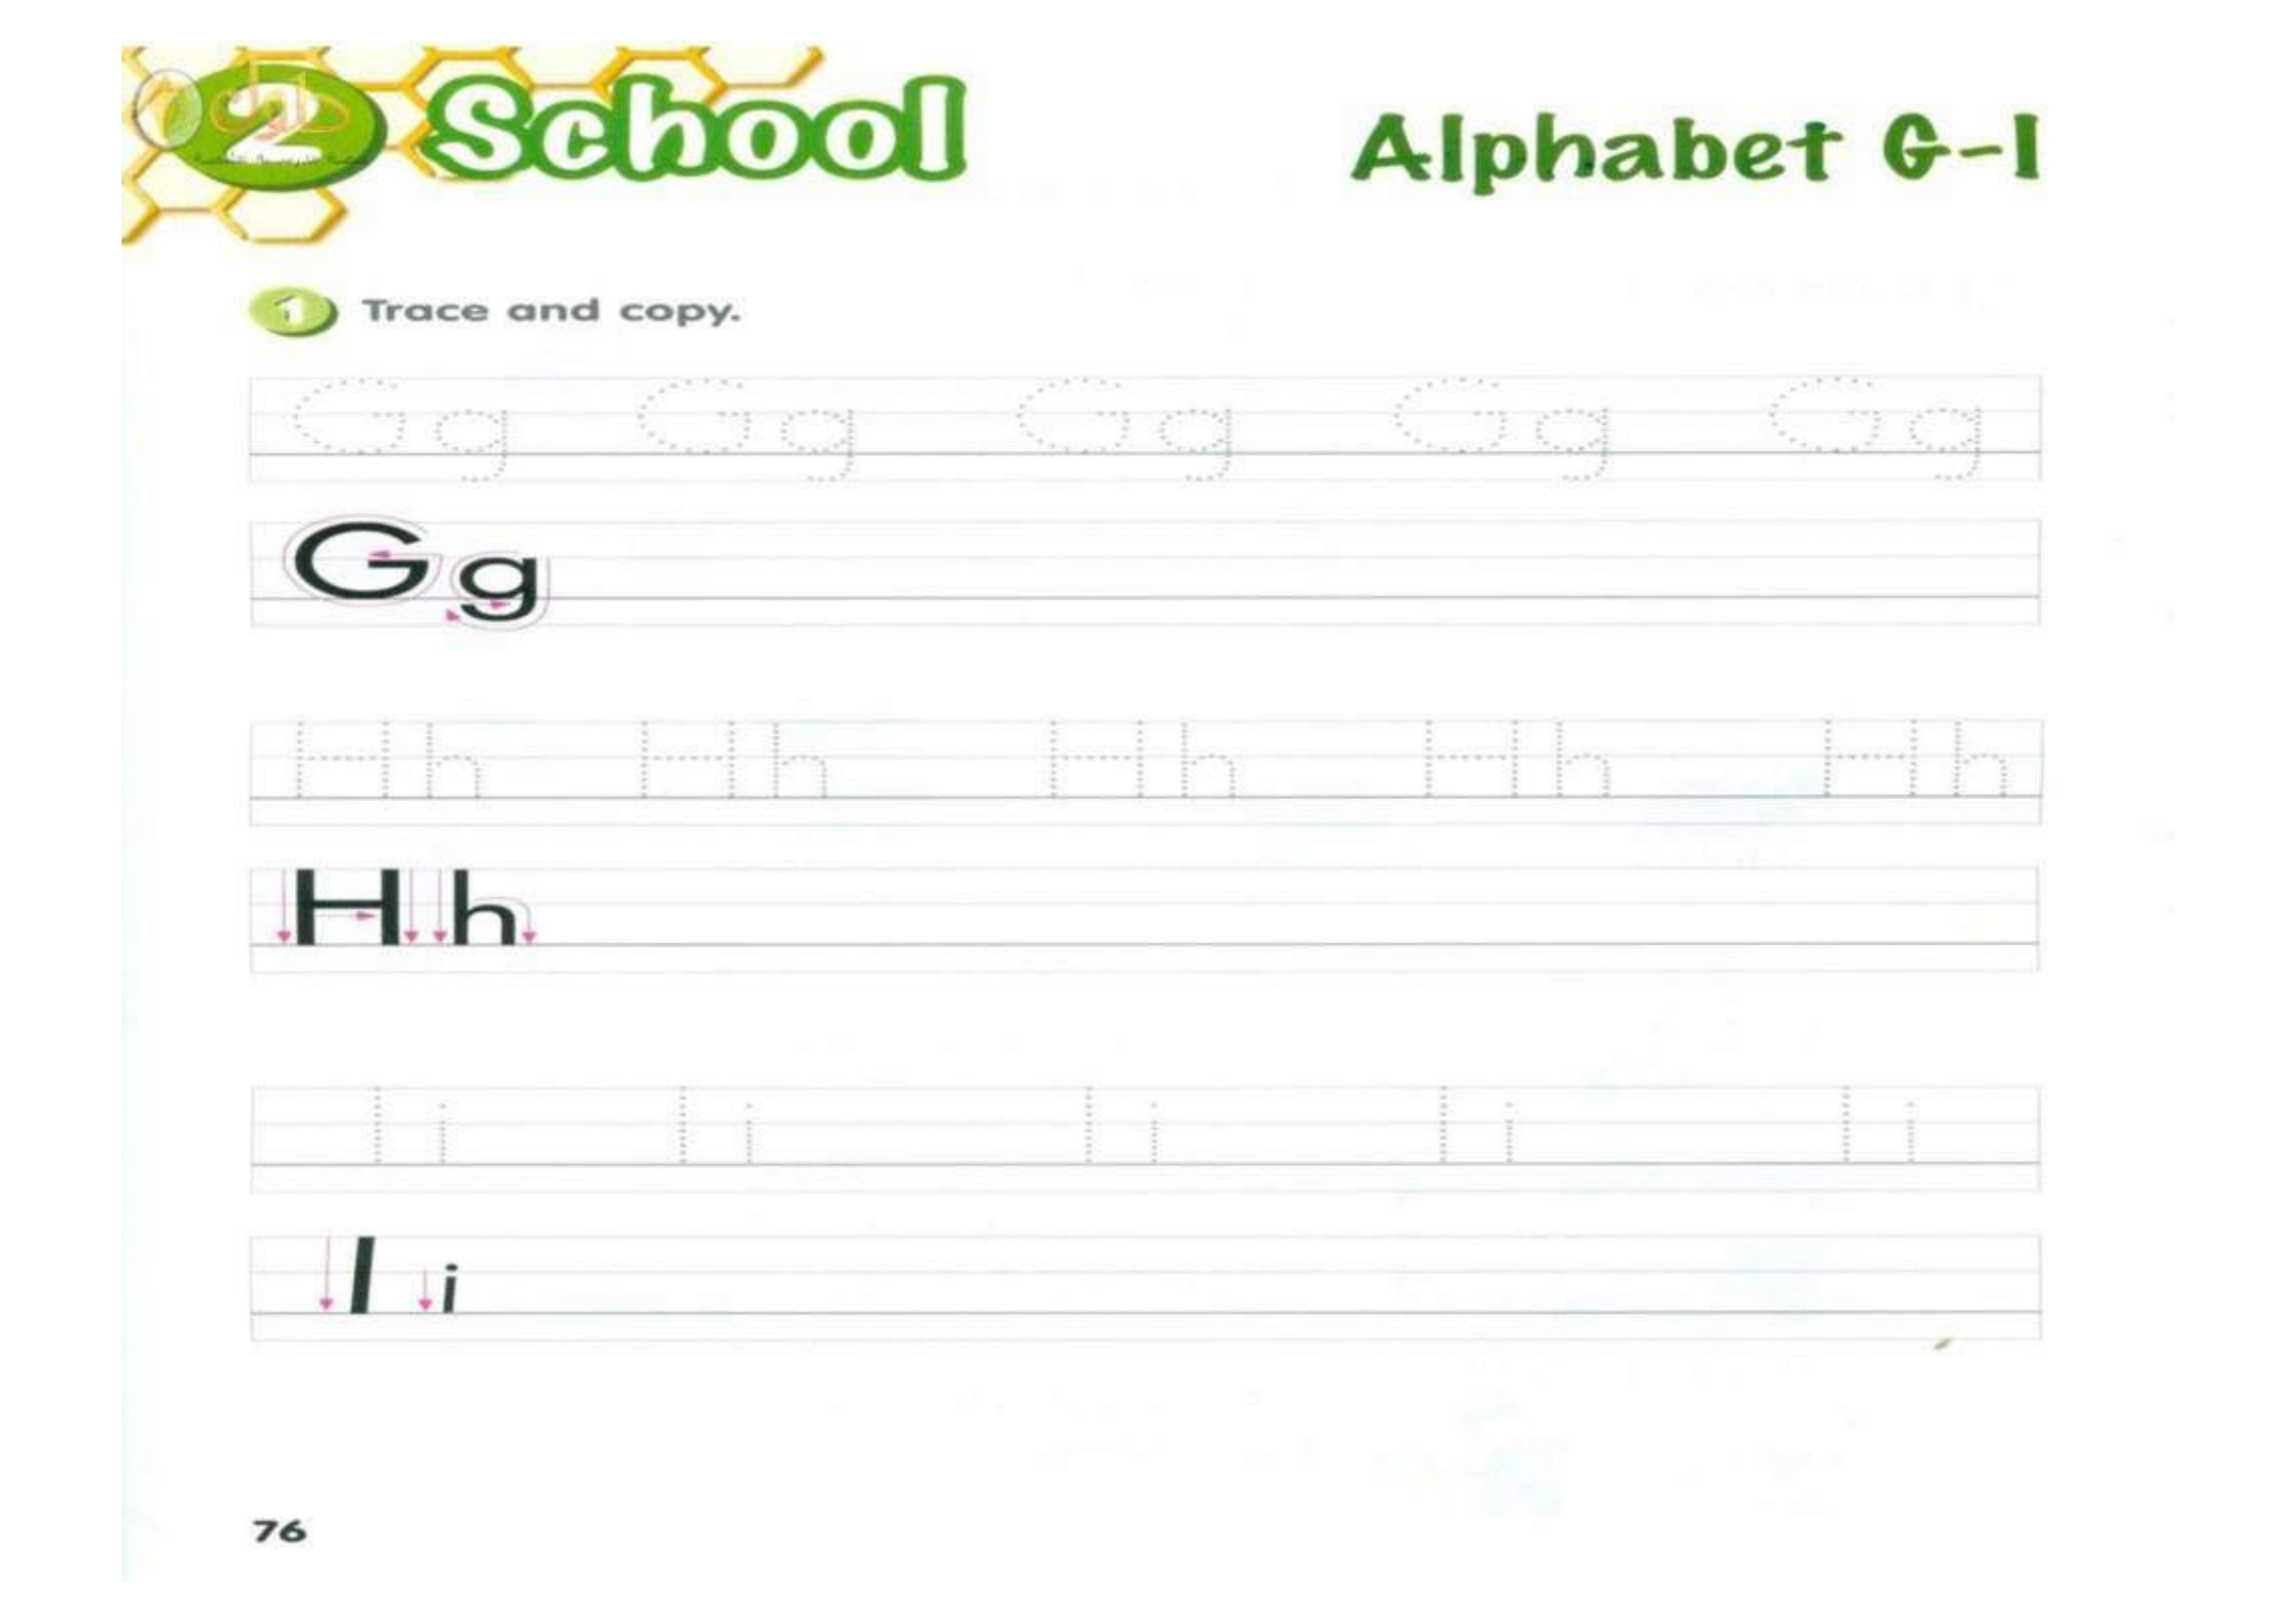 2 School
Alphabet G-I
1 Trace and copy.
Gg Gg Gg Gg Gg
Gg
Hh Hh Hh Hh Hh
Hh
Ii Ii Ii Ii Ii
Ii
76